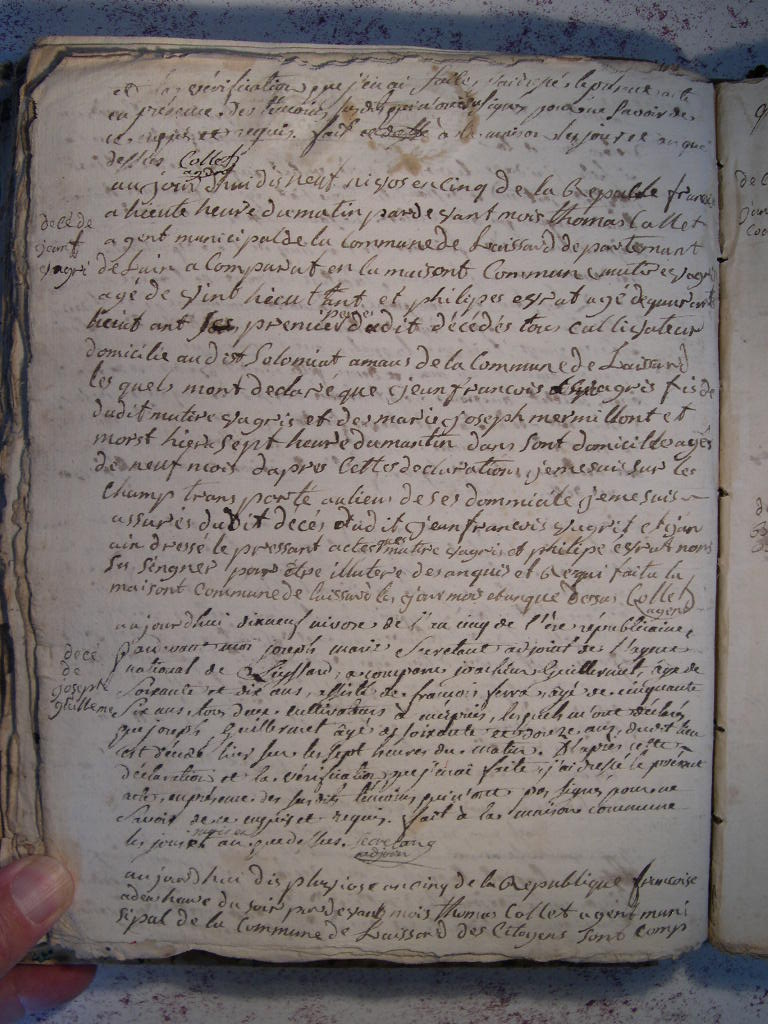 et la vérification que j'en ai faite, j'ai dressé le présent acte
en présence des témoins qui n'ont signé pour ne savoir de
ce enquis et requis. fait à la maison les jour et an que
dessus Collet
agent
aujourd'hui disneuf nivos en cinq de la Republ francoi
a hieute heure du matin par devant mois thomas Collet
agent municipal de la Commune de Luissard departemant
de Lain a Comparut en la maisont Commun matire vagri
agé de vint hieut ant et philipes esrat agé de quarant
hieut ant premier dudit décédés tous cultivateur
domicilie audit Solomiat amaus de la Commune de Luissard
les quels mont declaré que jean francois vagris fis de
dudit matire vagris et de maris joseph mermillont et
morst hier a sept heure du mantin dans sont domicille agés
de neuf moit dapres cettes declaration je me suis sur les
champ transporté au lieus de ses dommicile je me suis
assurés dudit decés dudit jean francois vagris et jan
ain dressé le pressant actes matire vagris et philipe esrat nons
ses singner pour être illutere de anquis et Requi fait a la
maisont Commune de luissard les jour mois et anque desus Collet
agent
decé de
jean f
vagri
aujourd'hui dixneuf nivose de l'an cinq de l'ère républicaine,
pardevant moi joseph marie Secretant adjoint de l'agent
national de Luissard, a comparu joachim Guillermet, âgé de
soixante et dix ans, assisté de françois ferra, âgé de cinquante
six ans, tous deux cultivateurs à mépris, lesquels m'ont déclaré
que joseph Guillermet âgé de soixante et douze ans, dudit lieu
est décédé hier sur les sept heures du matin. D'après cette
déclaration et la vérification que j'en ai faite, j'ai dressé le présent
acte, en présence des susdits témoins qui n'ont pas signés pour ne
savoir de ce enquis et requis. fait à la maison commune
les jour et an que dessus. Secretang
adjoin
decé
de
joseph
guilleme
aujourdhui dis pluviose an cinq de la Republique francoise
a deus heure du soir par devant mois thomas Collet agent muni
sipal de la Commune de Luissard des Citoyens sont comp